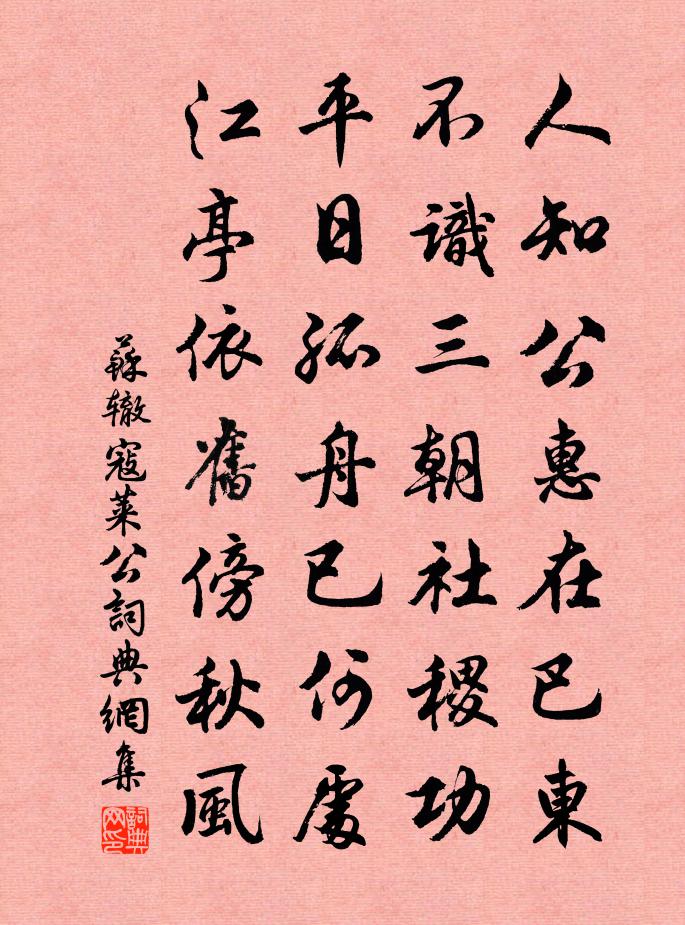 人知公惠在巴東
不識三朝社稷功
平日孤舟已何處
江亭依舊傍秋風
蘇辙寇萊公詞典網集
詞典网印